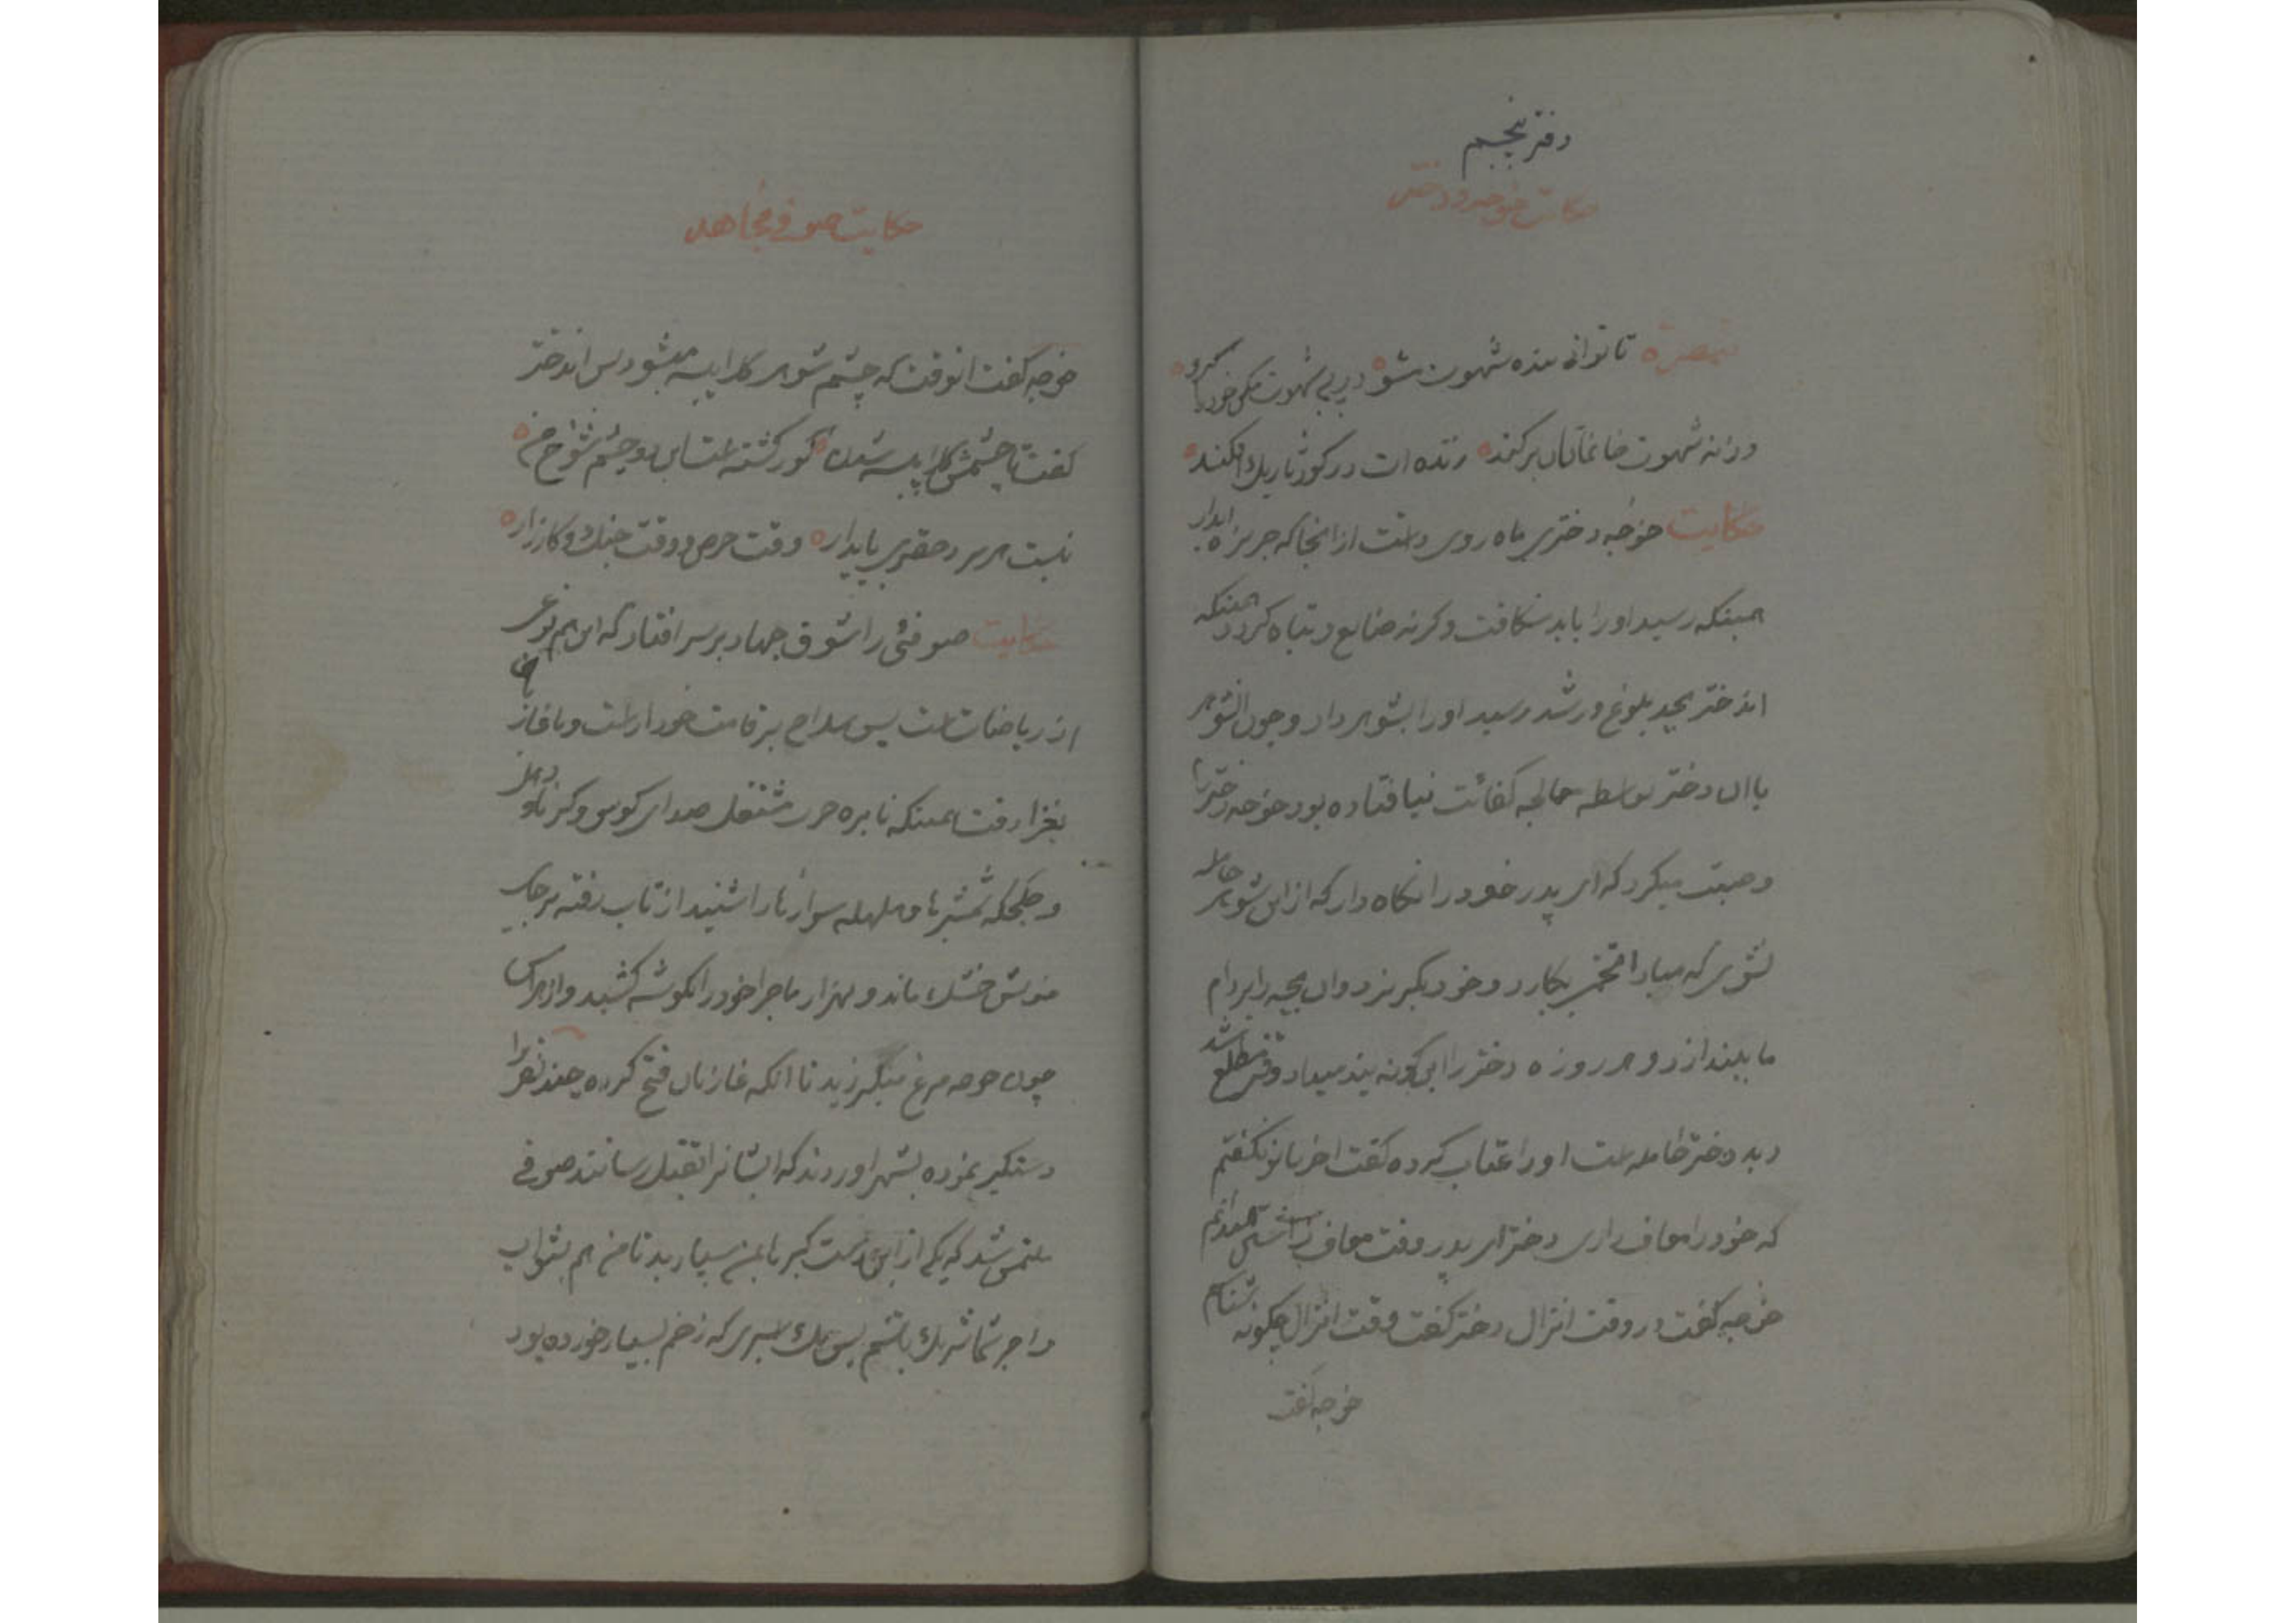 دفتر پنجم
حکایت خوجه و دختر
تبصره تا توانی بنده شهوت مشو در پی شهوت مکن خود را گرو
ورنه شهوت خانمانتان برکند زنده ات در کور تاریك افکند
حکایت خوجه دختری ماه روی داشت از انجا که خربزه ابدار
همینکه رسید او را باید شکافت وکرنه ضایع و تباه کردد همینکه
اندختر بحد بلوغ و رشد رسید او را بشوهر داد و چون انشوهر
با ان دختر بواسطه کفائت نیافتاده بود خوجه دختر را
وصیت میکرد که ای پدر خود را نکاه دار که از این شوهر حامله
نشوی که مبادا تخمی بکارد و خود بکریزد و ان بچه را بر دام
ما بیندازد و هر روزه دختر را این کونه پند میداد وقتی مطلع شد
دید دختر حامله است او را عتاب کرده کفت اخر با تو نکفتم
که خود را معاف داری دختر ای پدر وقت معاف
خوجه کفت در وقت انزال دختر کفت وقت انزال چکونه شناسم
خوجه کفت
حکایت صوفی مجاهد
خوجه کفت انوقت که چشم شوهر کلاپیسه میشود پس اندختر
کفت تا چشمش کلاپیسه شدن کور کشته است این دو چشم شوخ من
نیست هر حقیری پایدار وقت حرص و وقت جنك و کارزار
حکایت صوفئی را شوق جهاد بر سر افتاد که این هم نوعی
از ریاضات است پس سلاح بر قامت خود اراست و با غازیان
بغزا رفت همینکه نایره حرب مشتعل صدای کوس و کرنا و دهل
و چکچکه شمشیرها و هلهله سوارها را شنید از تاب رفته بر جای
خویش خشك ماند و بهزار ماجرا خود را بکوشه کشید و از هراس
چون جوجه مرغ میلرزید تا انکه غازیان فتح کرده چند نفر را
دستکیر نموده بشهر اوردند که ایشانرا بقتل رسانند صوفی
ملتمس شد که یکی از این دستکیرها بمن سپارید تا من هم بثواب
و اجر شما شریك باشم پس یك اسیری که زخم بسیار خورده بود